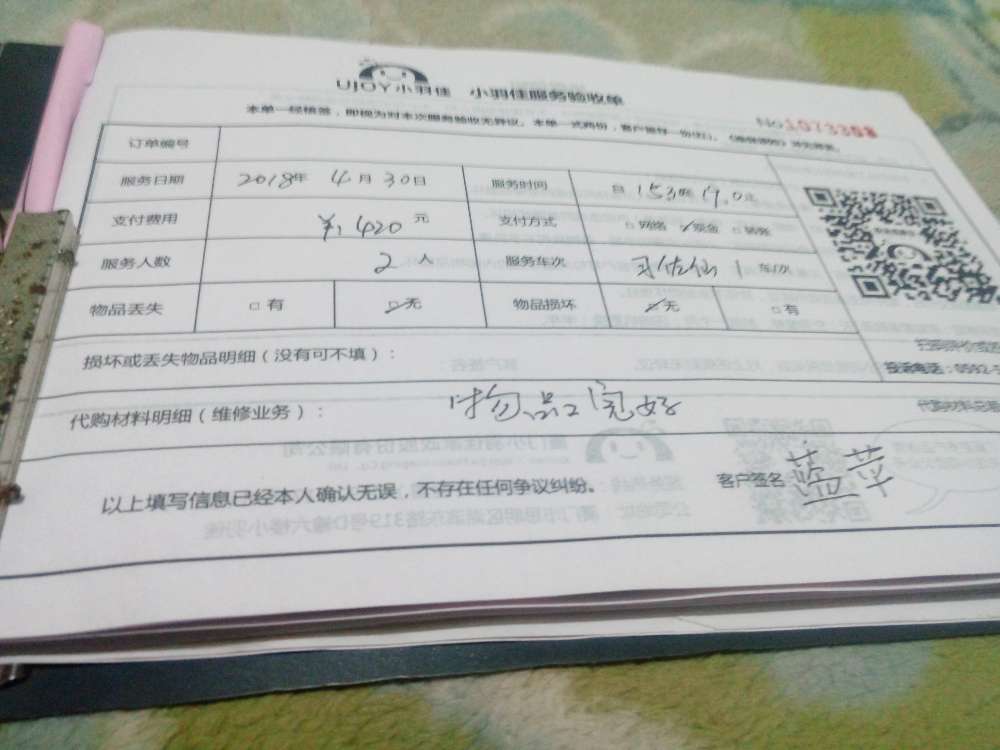 UJOY小羽佳 小羽佳服务验收单
本单一经签签，即视为对本次服务验收无异议。本单一式两份，客户留存一份
NO.1073308
订单编号
服务日期 2018年 4月 30日 服务时间 自 153 19.0止
支付费用 ¥:420 元 支付方式 □网络 ☑现金 □转账
服务人数 2 人 服务车次 1 车/次
物品丢失 □有 ☑无 物品损坏 ☑无 □有
损坏或丢失物品明细（没有可不填）：
投诉电话：0592-5
代购材料明细（维修业务）： 物品完好
以上填写信息已经本人确认无误，不存在任何争议纠纷。 客户签名 蓝苹